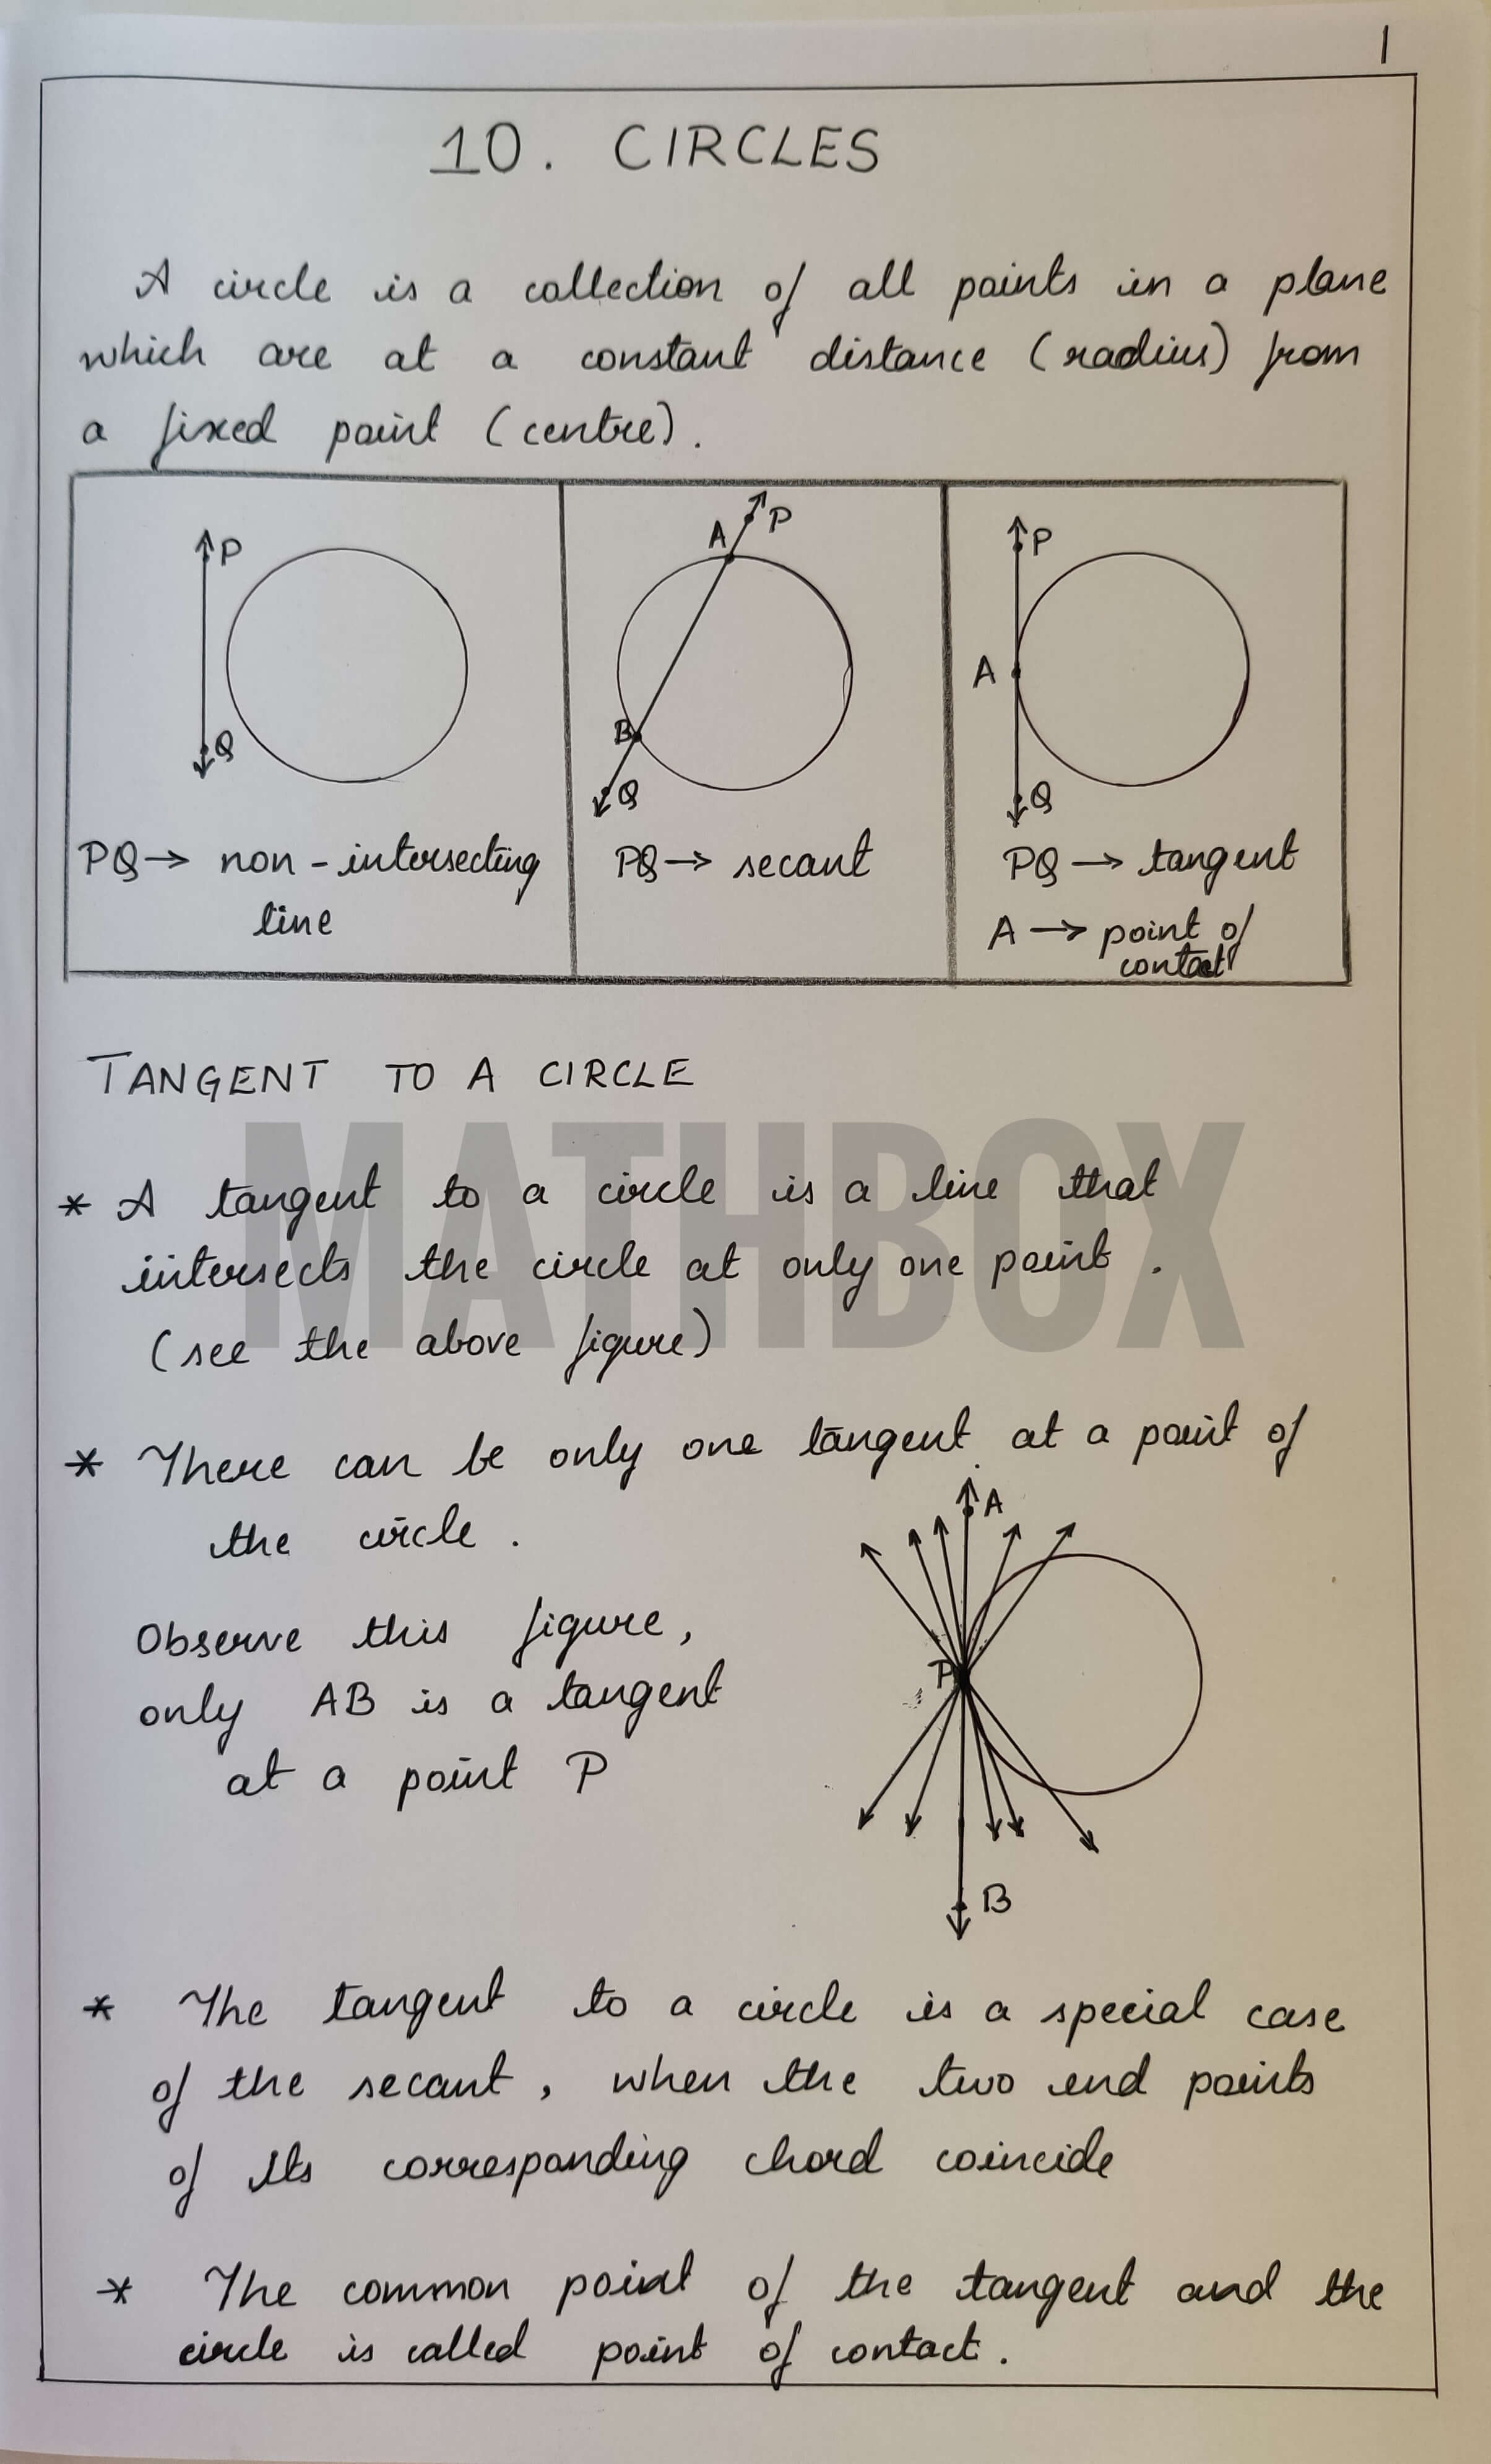 1
10. CIRCLES
A circle is a collection of all points in a plane
which are at a constant distance (radius) from
a fixed point (centre).
P
Q
PQ → non-intersecting
line
A
P
B
Q
PQ → secant
P
A
Q
PQ → tangent
A → point of
contact
TANGENT TO A CIRCLE
MATHBOX
* A tangent to a circle is a line that
intersects the circle at only one point.
(see the above figure)
* There can be only one tangent at a point of
the circle.
Observe this figure,
only AB is a tangent
at a point P
A
P
B
* The tangent to a circle is a special case
of the secant, when the two end points
of its corresponding chord coincide
* The common point of the tangent and the
circle is called point of contact.